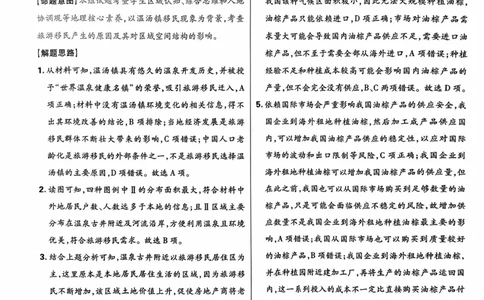 【命题意图】本组试题考查学生区域认知、综合思维和人地
协调观等地理核心素养,以温汤镇移民现象为背景,考查
旅游移民产生的原因及其对区域空间结构的影响。
【解题思路】
1.从材料可知,温汤镇具有悠久的温泉开发历史,并被授
予“世界温泉健康名镇”的荣誉,吸引旅游移民迁入,A
项正确;材料中没有温汤镇环境变化的相关信息,得不
出其环境改善的结论,B项排除;当地经济发展是旅游
移民群体不断壮大带来的影响,C项错误;中国人口老
龄化是旅游移民的外部条件之一,不是旅游移民选择温
汤镇的主要原因,D项错误。故选A项。
2.读图可知,四种图例中Ⅱ的分布面积最大,符合材料中
外地居民户数、人数远多于本地的信息;且Ⅱ区域主要
分布在温泉古井附近及河流沿岸,方便利用温泉且环境
优美,符合旅游移民需求。故选B项。
3.结合上题分析可知,温泉古井附近以旅游移民居住区为
主,这里原本是本地居民居住生活的区域,因为旅游移
民不断增加,该区域土地价值上升,促使房地产商将老
我国该种气候区面积较小,因此无法大量种植油棕,
油棕产品只能依赖进口,D项正确;市场对油棕产品需
求量大可能会导致国内油棕产品供应不足,需要进口油
棕产品,但不至于需要全部从海外进口,A项错误;种植
经验不足和种植成本较高可能会影响国内油棕产品的
产量,但不会完全没有供应,B、C两项错误。故选D项。
5.依赖国际市场会严重影响我国油棕产品的供应安全,我
国企业到海外租地种植油棕,然后加工成产品供应国
内,可以增加我国油棕产品供应的稳定性,以应对国际
市场的波动和出口限制等风险,C项正确;我国企业到
海外租地种植油棕可以增加我国油棕产品的供应量,但
在此之前,我国也可以从国际市场购买到足够数量的油
棕产品,只是可能会面临供应不稳定的风险,故增加供
应数量不是我国企业到海外租地种植油棕最主要的影
响,A项错误;我国从国际市场也可以购买到质量较好
的油棕产品,B项错误;我国企业到海外租地种植油棕,
并在种植园附近建加工厂,再将生产的油棕产品运回国
内,这一系列投入的成本不一定比直接购买油棕产品付